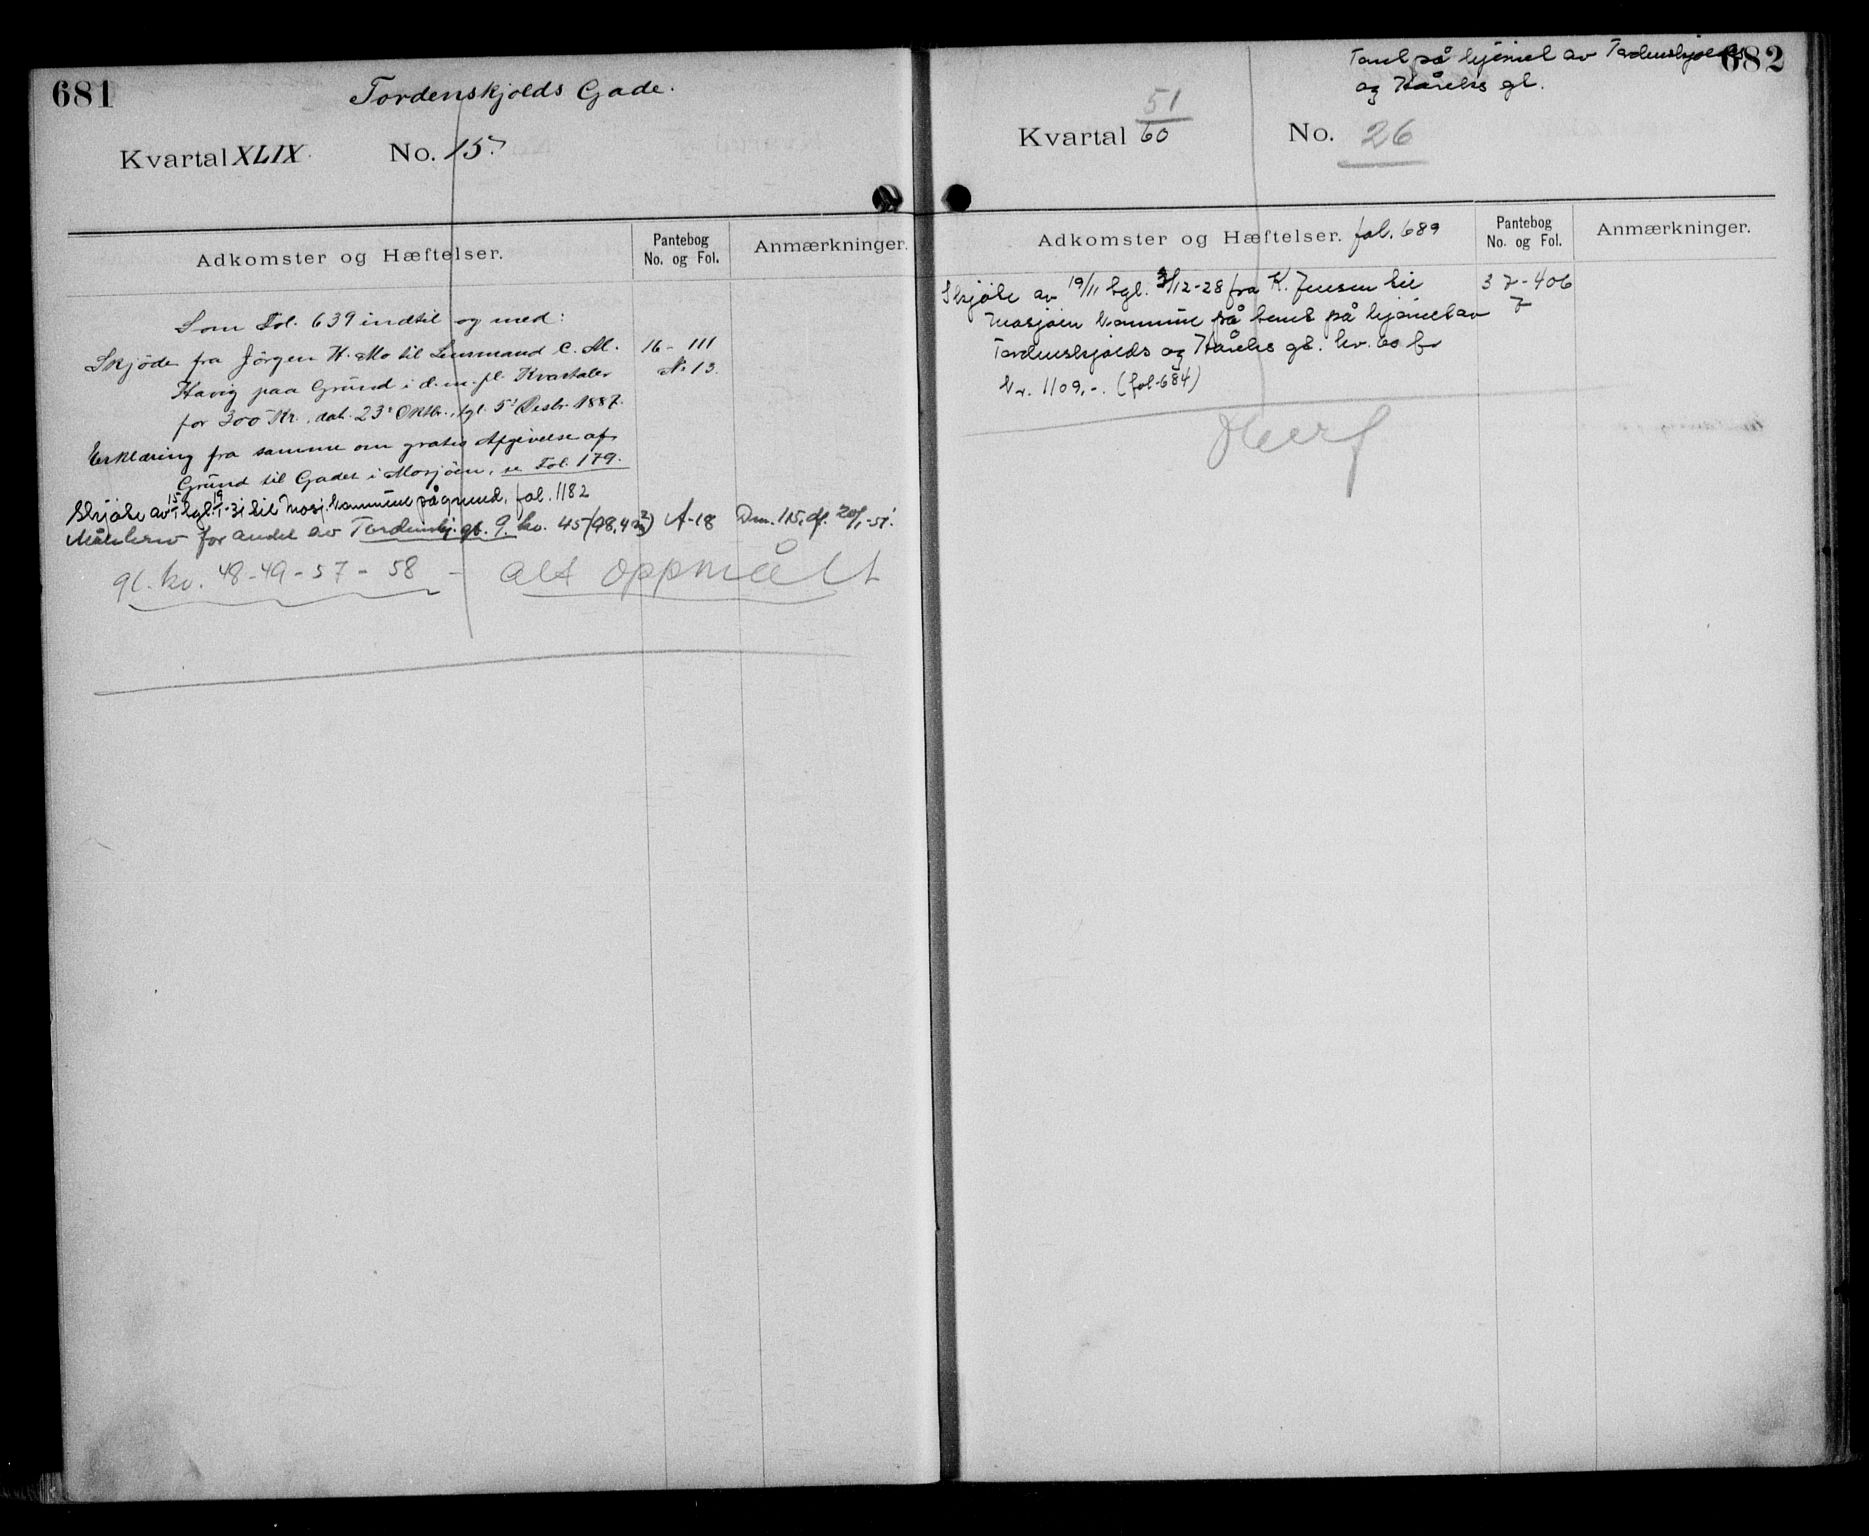 681
Tordenskjolds Gade.
Kvartal XLIX. No. 15.
Adkomster og Hæftelser.
Pantebog
No. og Fol.
Anmærkninger.
Som Fol. 639 indtil og med:
Skjøde fra Jörgen H. Mo til Lensmand C. M. 16 - 111
Havig paa Grund i d. m. fl. Kvartaler No 13.
for 300 Kr., dat. 23 Oktbr., tgl. 5 Desbr. 1887.
Erklæring fra samme om gratis Afgivelse af
Grund til Gader i Mosjöen, se Fol. 179.
Skjøte av tgl. til Mosj. kommune på grund, fol. 1182
Målebrev for andel av Tordenskj. gt. 9. kv. 45 (98,4 m2) A-18 Dm. 115, df. 20/1-51.
gl. kv. 48-49-57-58 - alt oppmålt
682
Tomt på hjørnet av Tordenskjolds
og Håreks gt.
Kvartal 51/60 No. 26
Adkomster og Hæftelser. fol. 689
Pantebog
No. og Fol.
Anmærkninger.
Skjøte av 19/11 tgl. /12-28 fra K. Jensen til 37-406
Mosjøen kommune på tomt på hjørnet av 7
Tordenskjolds og Håreks gt. kv. 60 for
kr. 1109,-. (fol-684)